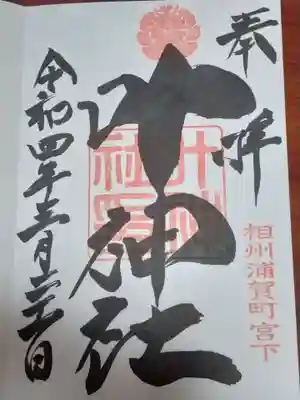 奉拝
叶神社
相州浦賀町宮下
令和四年三月二十一日